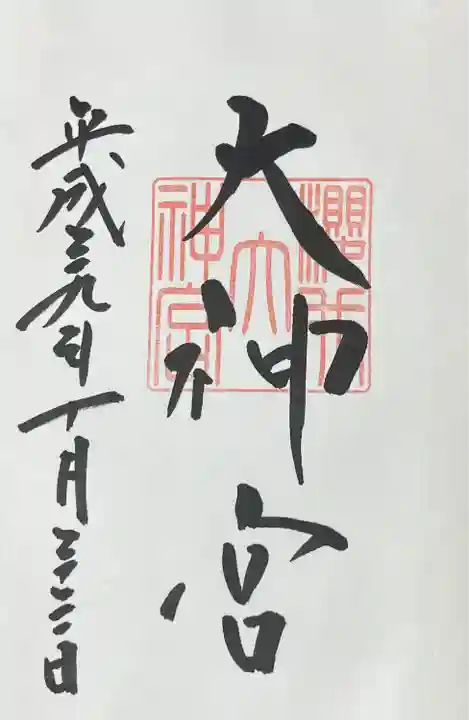 大神宮
平成二十九年十月二十二日
大
神宮